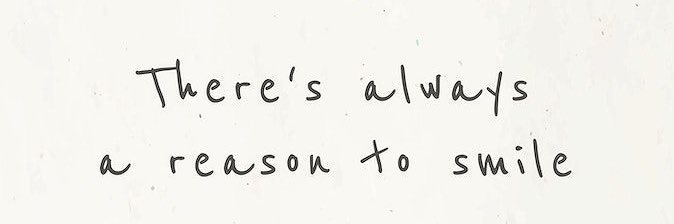 There's always
a reason to smile